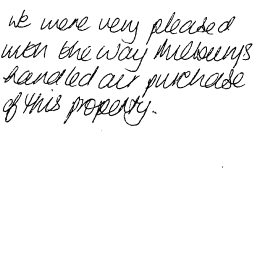 We were very pleased
with the way Milburys
handled our purchase
of this property.